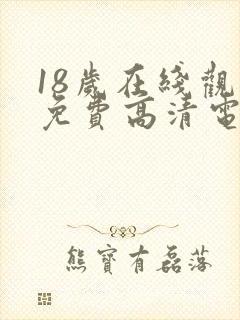 18歲在綫觀
免費高清電
熊寶有磊落